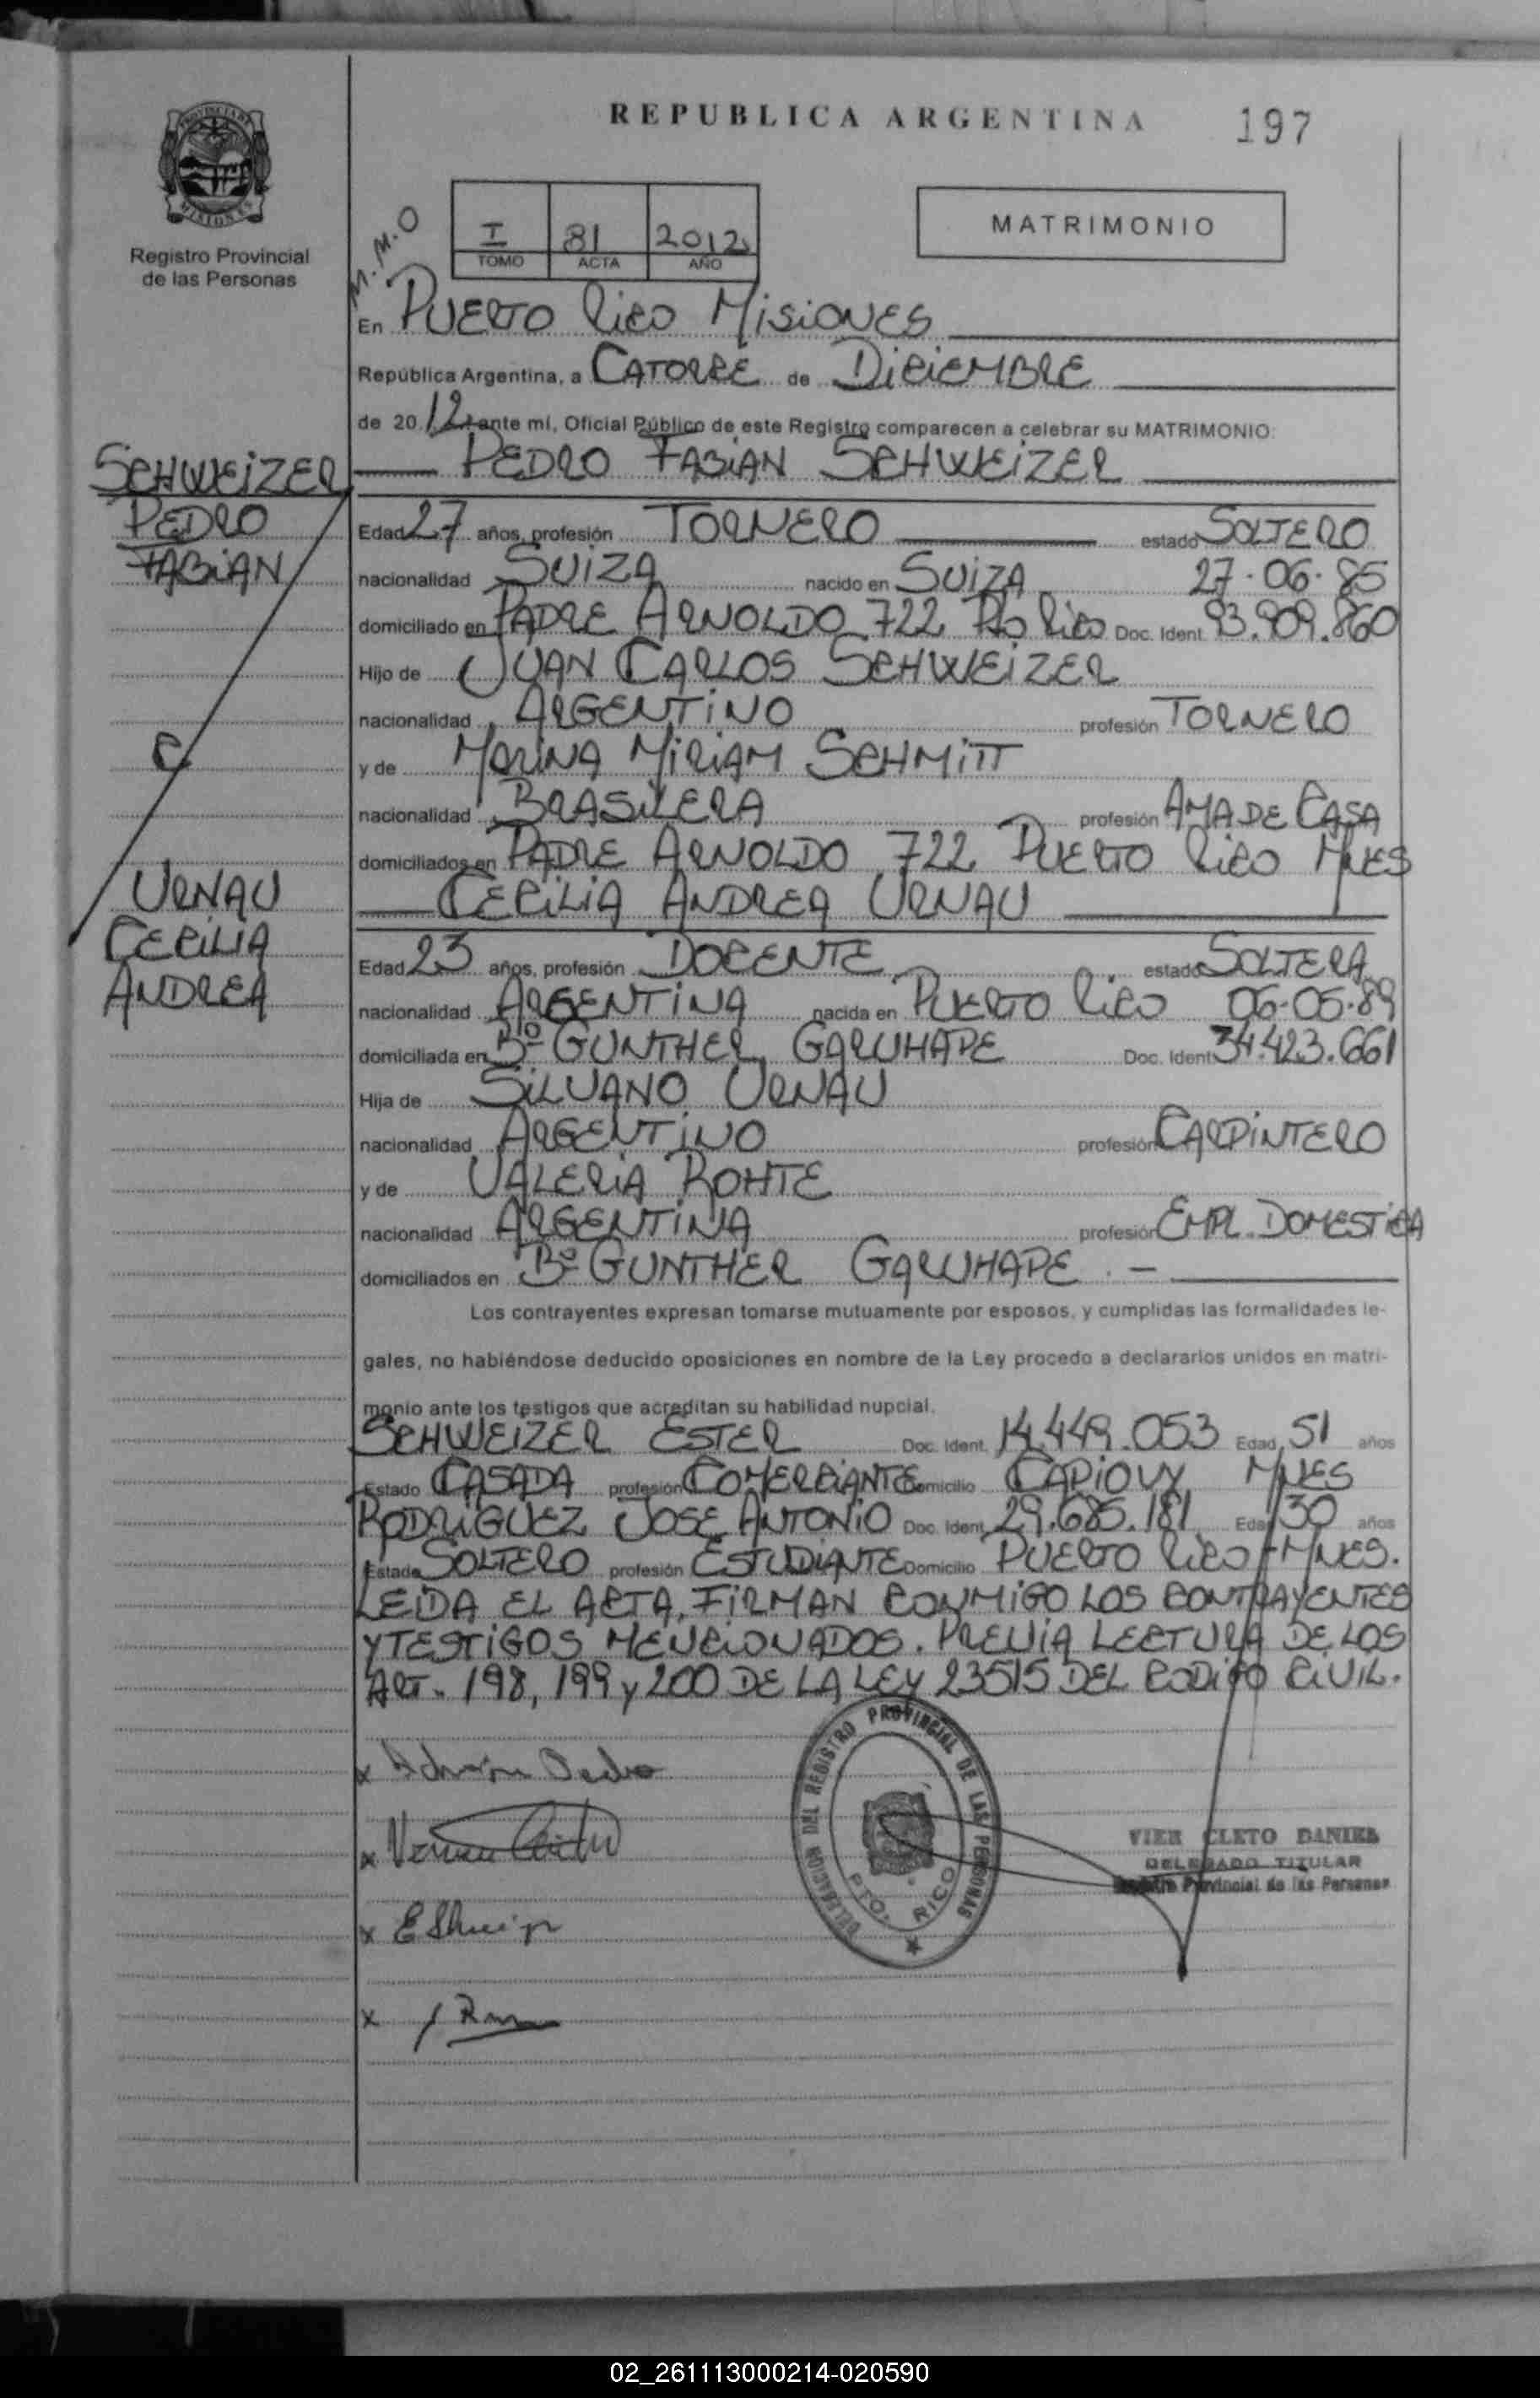 REPUBLICA ARGENTINA 197
PROVINCIA DE
MISIONES
Registro Provincial
de las Personas
M.M.O
I 81 2012
TOMO ACTA AÑO
MATRIMONIO
En PUERTO RICO MISIONES
República Argentina, a CATORCE de DICIEMBRE
de 20 12 ante mí, Oficial Público de este Registro comparecen a celebrar su MATRIMONIO:
SCHWEIZER
PEDRO
FABIAN
PEDRO FABIAN SCHWEIZER
Edad 27 años, profesión TORNERO estado SOLTERO
nacionalidad SUIZA nacido en SUIZA 27-06-85
domiciliado en PADRE ARNOLDO 722 Pto Rico Doc. Ident. 93.909.860
Hijo de JUAN CARLOS SCHWEIZER
nacionalidad ARGENTINO profesión TORNERO
y de MARINA MIRIAM SCHMITT
C
nacionalidad BRASILERA profesión AMA DE CASA
domiciliados en PADRE ARNOLDO 722 PUERTO RICO MNES
URNAU
CECILIA
ANDREA
CECILIA ANDREA URNAU
Edad 23 años, profesión DOCENTE estado SOLTERA
nacionalidad ARGENTINA nacida en PUERTO RICO 06-05-89
domiciliada en Bº GUNTHER GARUHAPE Doc. Ident. 34.423.661
Hija de SILVANO URNAU
nacionalidad ARGENTINO profesión CARPINTERO
y de VALERIA ROHTE
nacionalidad ARGENTINA profesión EMPL. DOMESTICA
domiciliados en Bº GUNTHER GARUHAPE . -
Los contrayentes expresan tomarse mutuamente por esposos, y cumplidas las formalidades le-
gales, no habiéndose deducido oposiciones en nombre de la Ley procedo a declararlos unidos en matri-
monio ante los testigos que acreditan su habilidad nupcial.
SCHWEIZER ESTER Doc. Ident. 14.449.053 Edad 51 años
Estado CASADA profesión COMERCIANTE Domicilio CAPIOVY MNES
RODRIGUEZ JOSE ANTONIO Doc. Ident. 29.685.181 Edad 30 años
Estado SOLTERO profesión ESTUDIANTE Domicilio PUERTO RICO-MNES.
LEIDA EL ACTA, FIRMAN CONMIGO LOS CONTRAYENTES
Y TESTIGOS MENCIONADOS. PREVIA LECTURA DE LOS
ART. 198, 199 y 200 DE LA LEY 23515 DEL CODIGO CIVIL.
DELEGACION DEL REGISTRO PROVINCIAL DE LAS PERSONAS
PTO. RICO
VIER CLETO DANIEL
DELEGADO TITULAR
Registro Provincial de las Personas
x
x
x
x
02_261113000214-020590